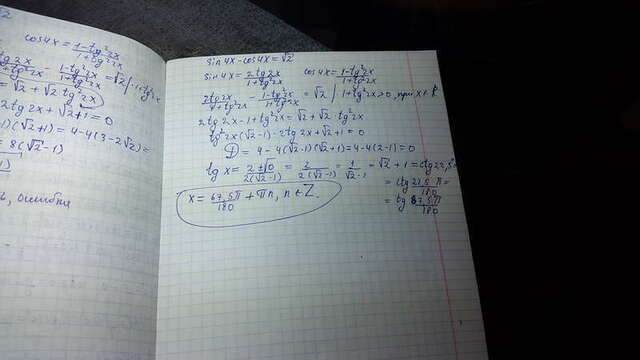 √2
cos4x = 1-tg²2x / 1+tg²2x
tg2x / 1+tg²2x - 1-tg²2x / 1+tg²2x = √2 | · 1+tg²2x
= √2 + √2 tg²2x
2tg2x + √2+1 = 0
-1)(√2+1) = 4-4(3-2√2) =
= 8(√2-1)
ошибка
sin4x - cos4x = √2
sin4x = 2tg2x / 1+tg²2x cos4x = 1-tg²2x / 1+tg²2x
2tg2x / 1+tg²2x - 1-tg²2x / 1+tg²2x = √2 | · 1+tg²2x>0, при x ∈ R
2tg2x - 1 + tg²2x = √2 + √2 · tg²2x
tg²2x(√2-1) - 2tg2x + √2+1 = 0
D = 4 - 4(√2-1)(√2+1) = 4-4(2-1) = 0
tg x = 2±√0 / 2(√2-1) = 2 / 2(√2-1) = 1 / √2-1 = √2 + 1 = ctg22,5
= ctg 22,5π / 180 =
= tg 67,5π / 180
x = 67,5π / 180 + πn, n ∈ Z.